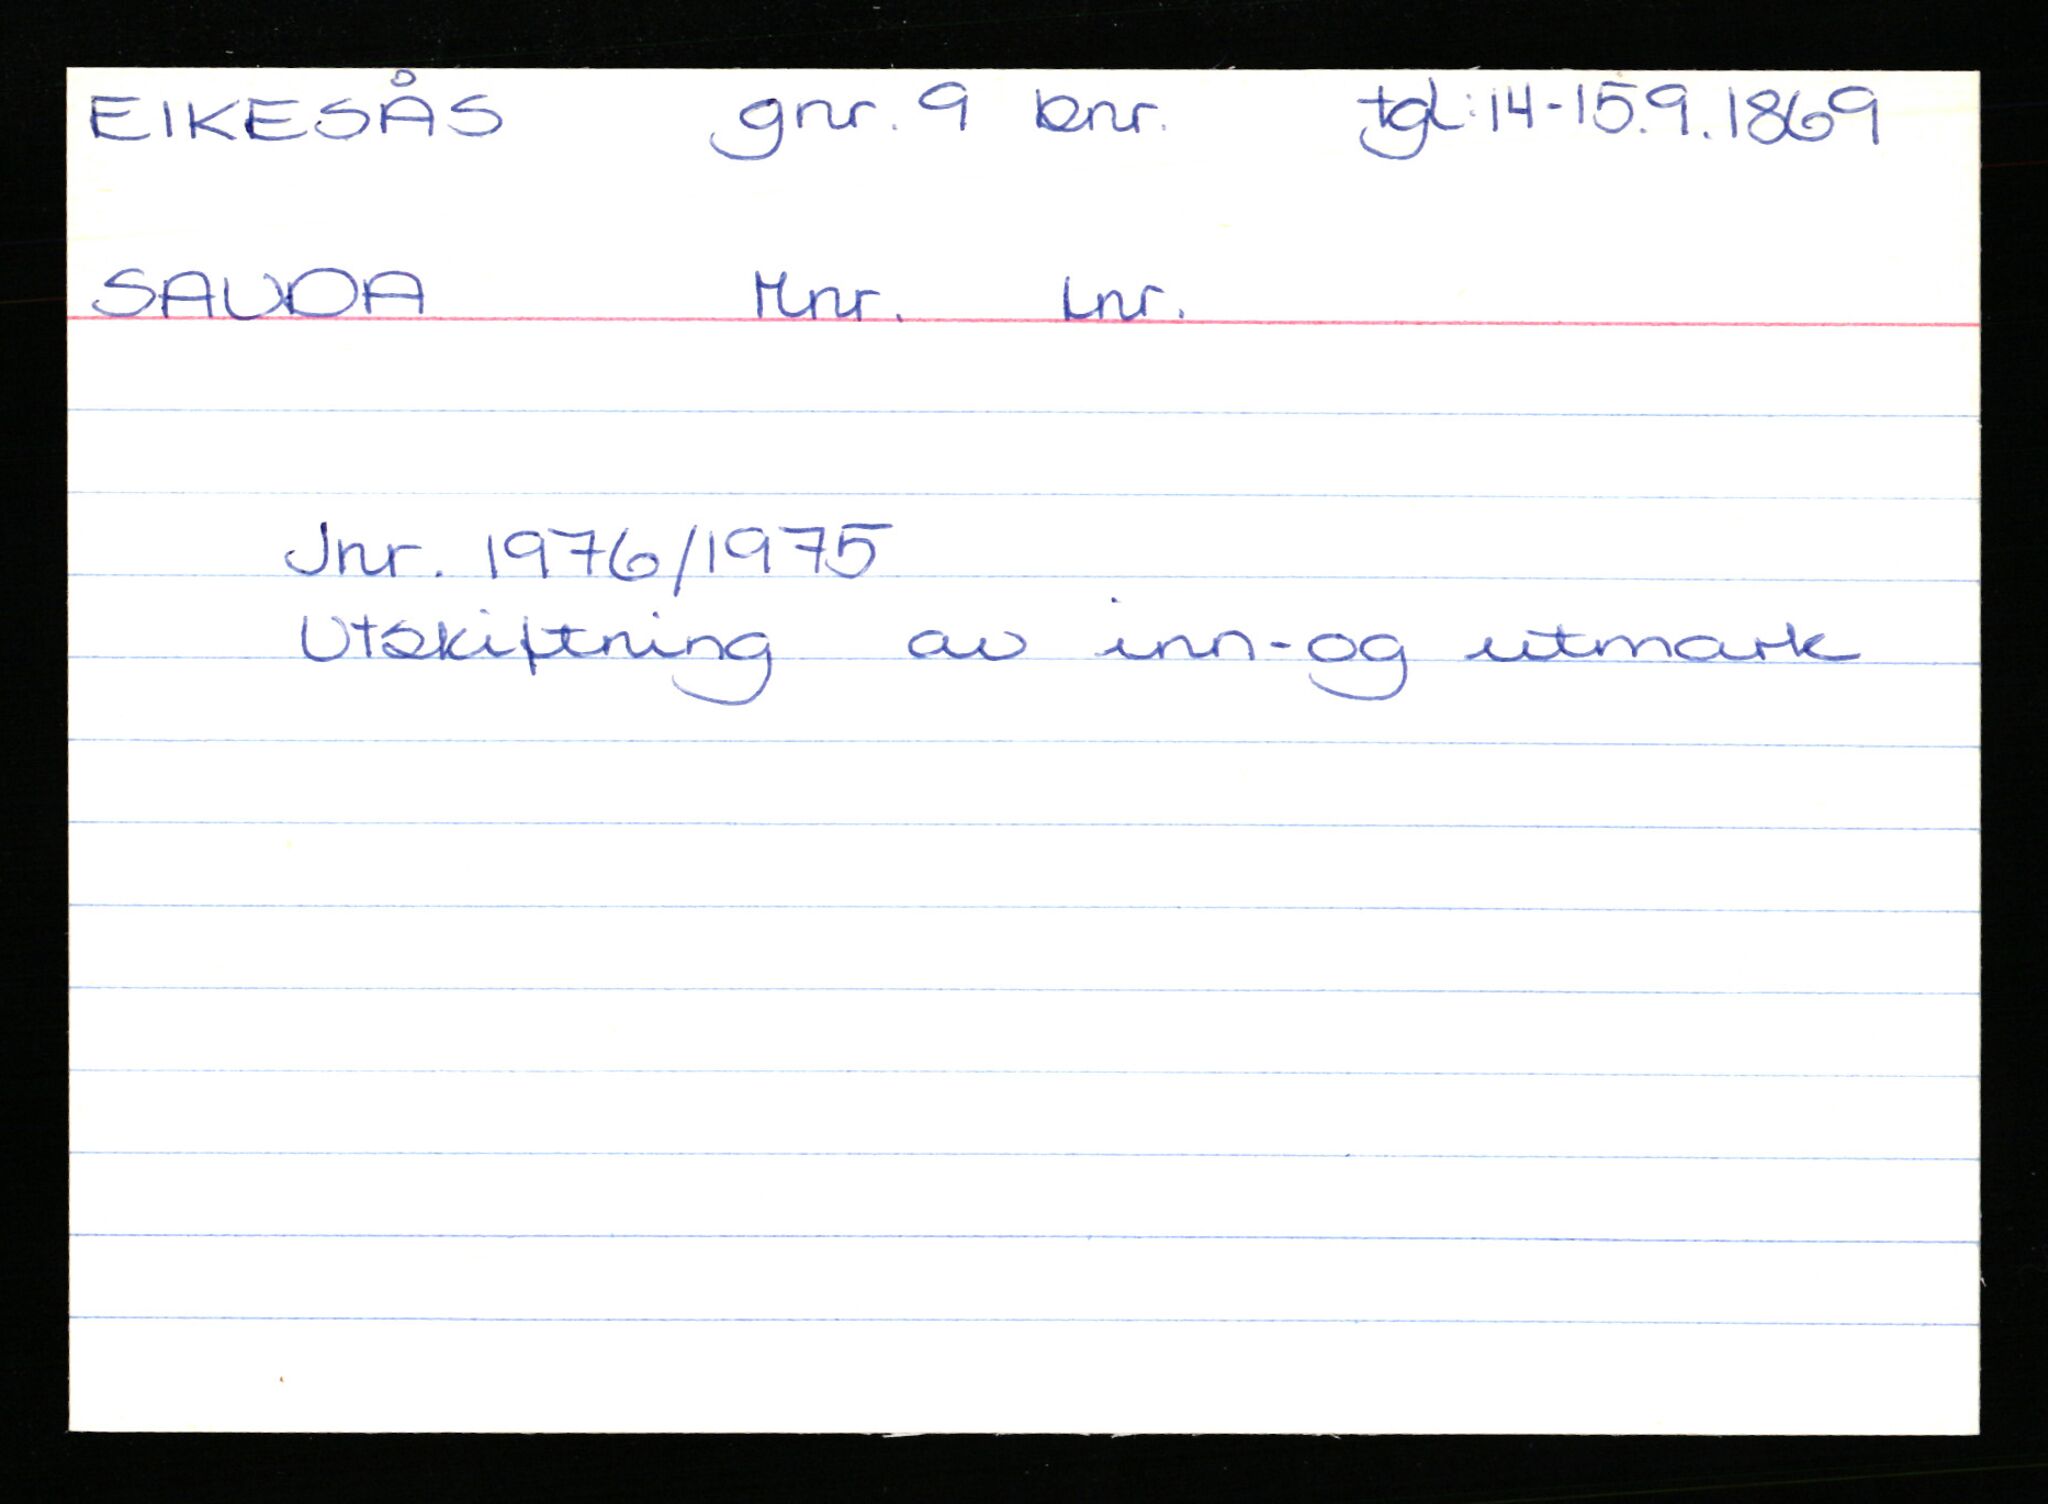 EIKESÅS gnr. 9 bnr. tgl: 14-15.9.1869
SAUDA Mnr. Lnr.
Jnr. 1976/1975
Utskiftning av inn-og utmark